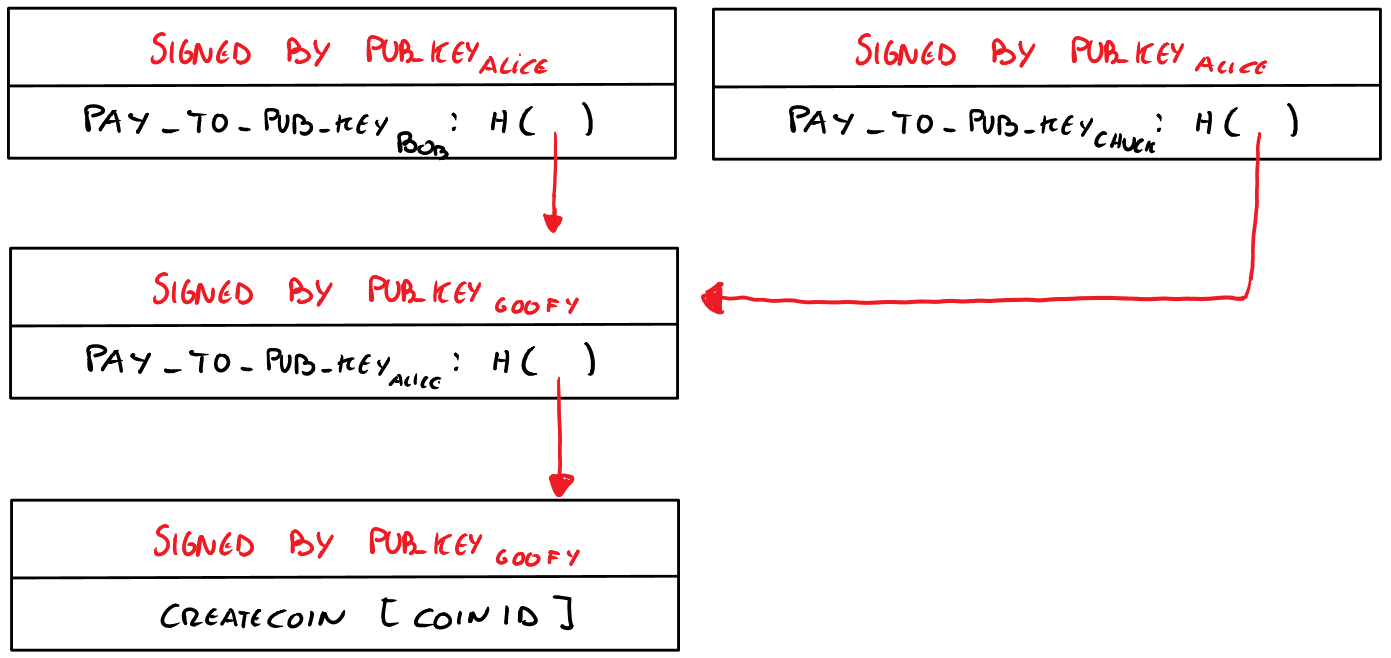 SIGNED BY PUB_KEY ALICE
PAY_TO_PUB_KEY BOB : H( )
SIGNED BY PUB_KEY ALICE
PAY_TO_PUB_KEY CHUCK : H( )
SIGNED BY PUB_KEY GOOFY
PAY_TO_PUB_KEY ALICE : H( )
SIGNED BY PUB_KEY GOOFY
CREATECOIN [COIN ID]